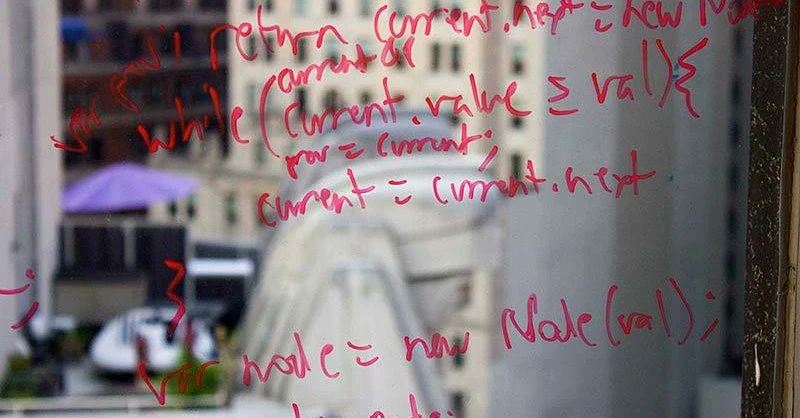 return current.next = new Node
var prev;
current &&
while (current.value ≤ val){
prev = current;
current = current.next
}
var node = new Node(val);